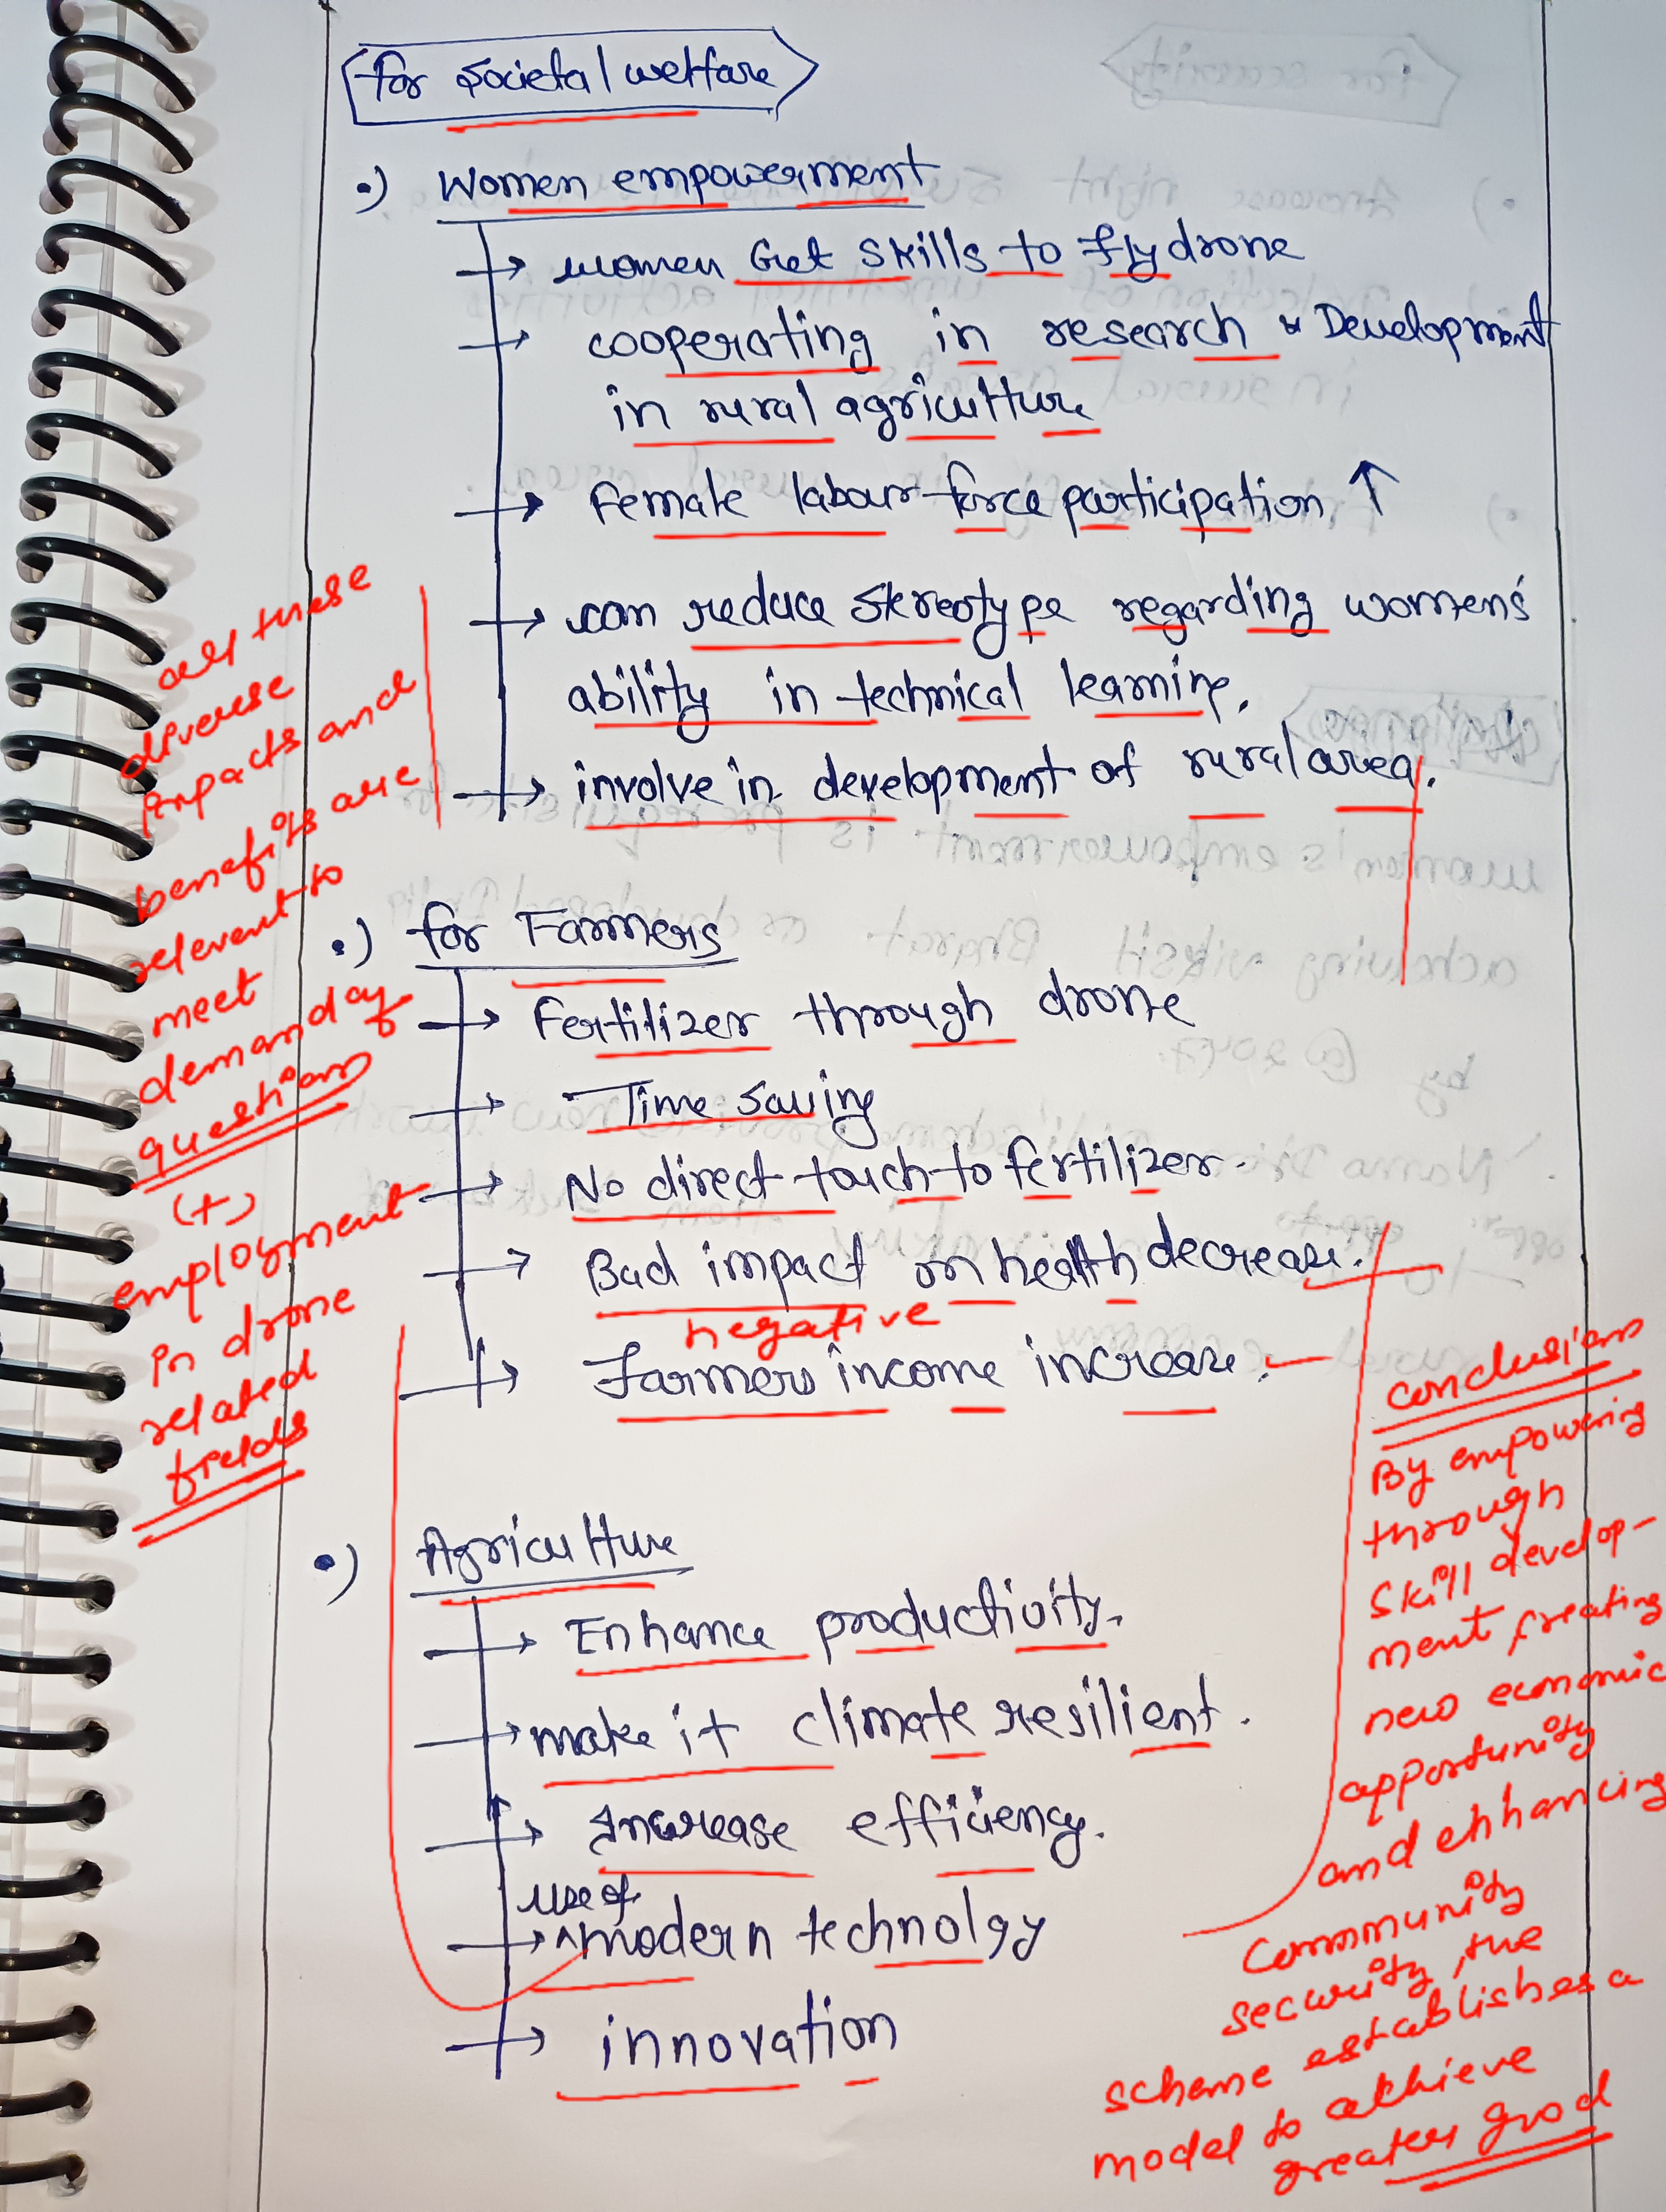 for societal welfare
•) Women empowerment
→ women Get skills to fly drone
→ cooperating in research & Development
in rural agriculture
→ Female labour force participation ↑
→ can reduce stereotype regarding womens'
ability in technical learning.
→ involve in development of rural area.
•) for Farmers
→ Fertilizer through drone
→ Time saving
→ No direct touch to fertilizer.
→ Bad impact on health decrease.
negative
→ Farmers income increase.
•) Agriculture
→ Enhance productivity.
→ make it climate resilient.
→ Increase efficiency.
use of
→ ^modern technolgy
→ innovation
all these
diverse
impacts and
benefits are
relevent to
meet
demand of
question
(+)
employment
in drone
related
fields
conclusion
By empowering
through
skill develop-
ment, creating
new economic
opportunity
and enhancing
community
security, the
scheme establishes a
model to achieve
greater good